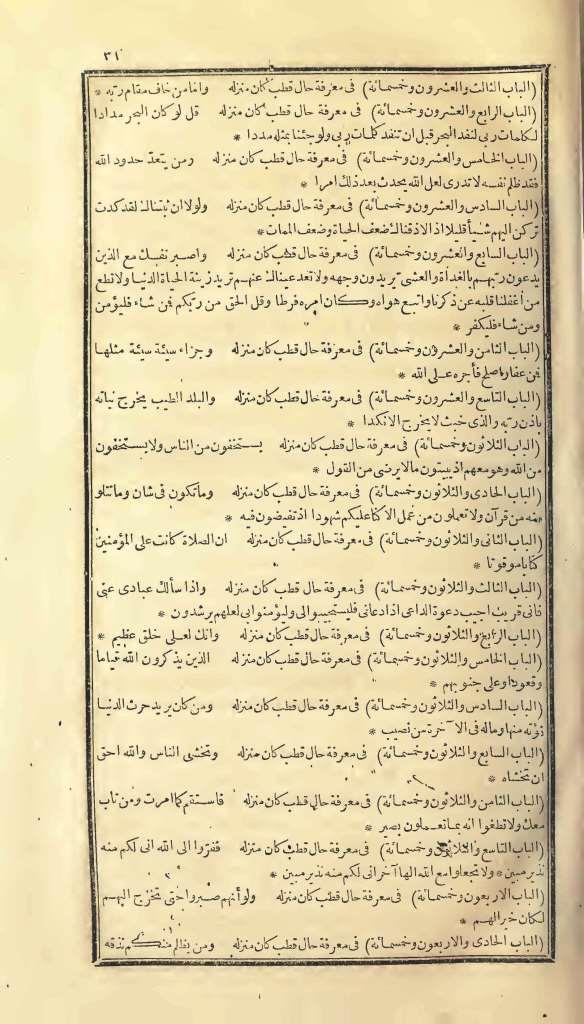 ٣١
(الباب الثالث والعشرون وخمسمائة) فى معرفة حال قطب كان منزله وامّا من خاف مقام ربه *
(الباب الرابع والعشرون وخمسمائة) فى معرفة حال قطب كان منزله قل لو كان البحر مدادا
لكلمات ربى لنفد البحر قبل ان تنفد كلمات ربى ولو جئنا بمثله مددا *
(الباب الخامس والعشرون وخمسمائة) فى معرفة حال قطب كان منزله ومن يتعدّ حدود الله
فقد ظلم نفسه لا تدرى لعل الله يحدث بعد ذلك امرا *
(الباب السادس والعشرون وخمسمائة) فى معرفة حال قطب كان منزله ولولا ان ثبتناك لقد كدت
تركن اليهم شيأ قليلا اذ الاذقناك ضعف الحياة وضعف الممات *
(الباب السابع والعشرون وخمسمائة) فى معرفة حال قطب كان منزله واصبر نفسك مع الذين
يدعون ربهم بالغداة والعشىّ يريدون وجهه ولا تعد عيناك عنهم تريد زينة الحياة الدنيا ولا تطع
من أغفلنا قلبه عن ذكرنا واتبع هواه وكان امره فرطا وقل الحق من ربكم فمن شاء فليؤمن
ومن شاء فليكفر *
(الباب الثامن والعشرون وخمسمائة) فى معرفة حال قطب كان منزله وجزاء سيئة سيئة مثلها
فمن عفا واصلح فأجره على الله *
(الباب التاسع والعشرون وخمسمائة) فى معرفة حال قطب كان منزله والبلد الطيب يخرج نباته
باذن ربه والذى خبث لا يخرج الا نكدا *
(الباب الثلاثون وخمسمائة) فى معرفة حال قطب كان منزله يستخفون من الناس ولا يستخفون
من الله وهو معهم اذ يبيتون ما لا يرضى من القول *
(الباب الحادى والثلاثون وخمسمائة) فى معرفة حال قطب كان منزله وما تكون فى شان وما تتلو
منه من قرآن ولا تعملون من عمل الا كنا عليكم شهودا اذ تفيضون فيه *
(الباب الثانى والثلاثون وخمسمائة) فى معرفة حال قطب كان منزله ان الصلاة كانت على المؤمنين
كتابا موقوتا *
(الباب الثالث والثلاثون وخمسمائة) فى معرفة حال قطب كان منزله واذا سألك عبادى عنى
فانى قريب اجيب دعوة الداعى اذا دعانى فليستجيبوا لى وليؤمنوا بى لعلهم يرشدون *
(الباب الرابع والثلاثون وخمسمائة) فى معرفة حال قطب كان منزله وانك لعلى خلق عظيم *
(الباب الخامس والثلاثون وخمسمائة) فى معرفة حال قطب كان منزله الذين يذكرون الله قياما
وقعودا وعلى جنوبهم *
(الباب السادس والثلاثون وخمسمائة) فى معرفة حال قطب كان منزله ومن كان يريد حرث الدنيا
نؤته منها وما له فى الآخرة من نصيب *
(الباب السابع والثلاثون وخمسمائة) فى معرفة حال قطب كان منزله وتخشى الناس والله احق
ان تخشاه *
(الباب الثامن والثلاثون وخمسمائة) فى معرفة حال قطب كان منزله فاستقم كما امرت ومن تاب
معك ولا تطغوا انه بما تعملون بصير *
(الباب التاسع والثلاثون وخمسمائة) فى معرفة حال قطب كان منزله ففرّوا الى الله انى لكم منه
نذير مبين * ولا تجعلوا مع الله الها آخر انى لكم منه نذير مبين *
(الباب الاربعون وخمسمائة) فى معرفة حال قطب كان منزله ولو أنهم صبروا حتى تخرج اليهم
لكان خيرا لهم *
(الباب الحادى والاربعون وخمسمائة) فى معرفة حال قطب كان منزله ومن يظلم منكم نذقه